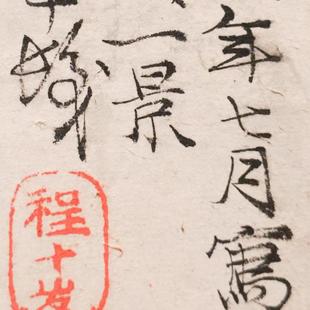 年七月寫
一景
程十发